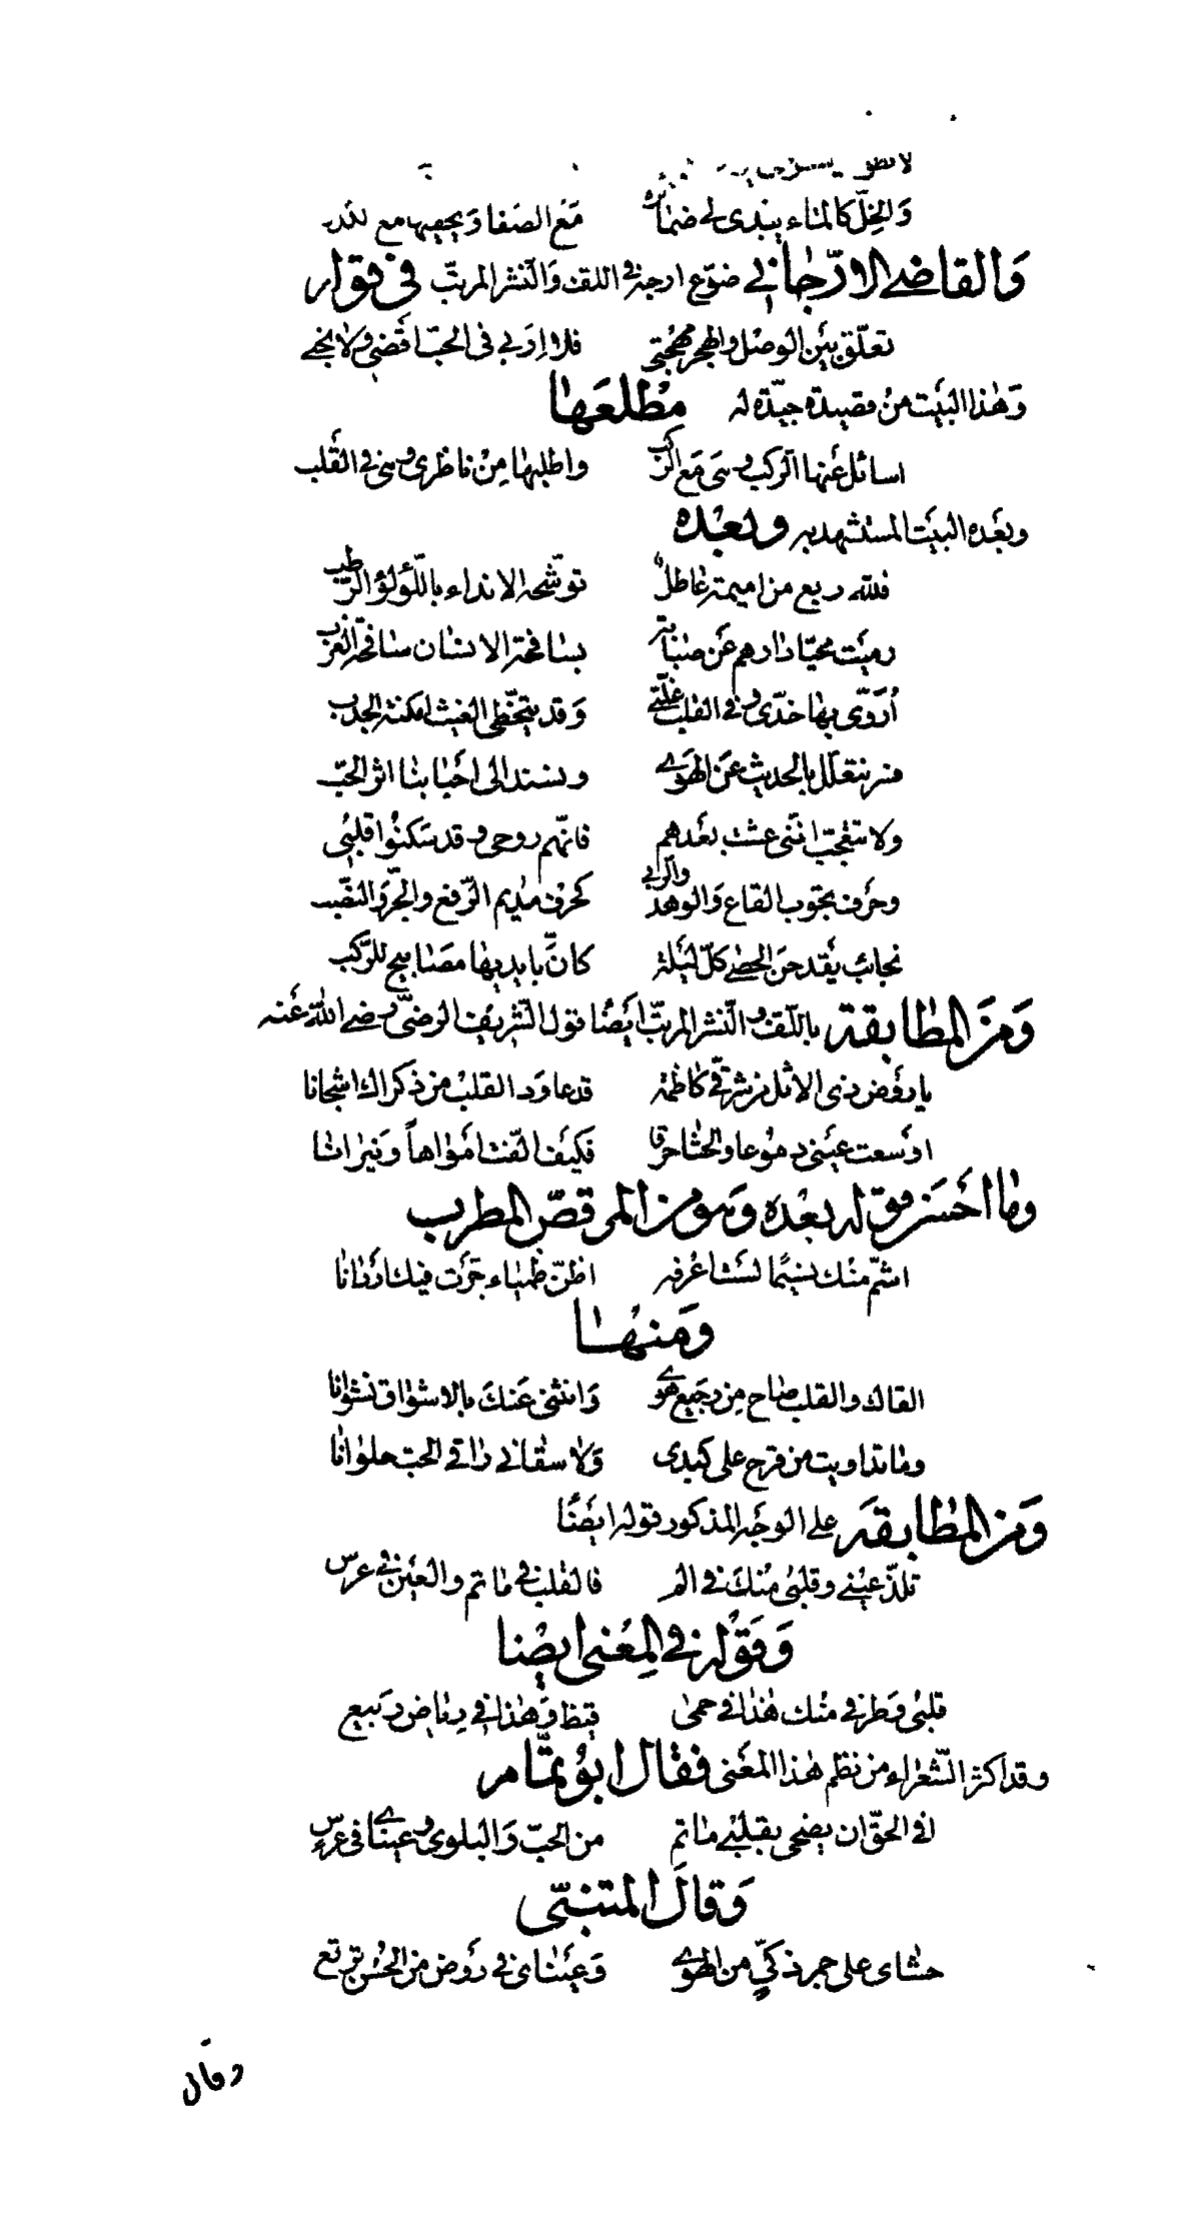 والخِلّ كالماء يبدى لى ضمائره مَعَ الصَفا وَيخفيها مع الكدر
وَالقاضى الارّجانى ضوّع ارجه فى اللف وَالنشر المرتّب فى قوله
تعلّق بَين الوصْل والهجر مهجتى فلا اربى فى الحبّ اقضى ولا نحبى
وَهٰذا البَيت منْ قصيدة جيّدة له مَطْلعَها
اسائل عَنها الركب وهى مَع الركب واطلبها مِنْ ناظرى وهى فى القَلب
وبعَده البَيت المستشهد به وبعْده
فلله ربع من اميمة عاطلٌ توشّحه الانداء باللّؤلؤ الرّطب
رميَت محيّا دارهم عَن صبابة بسافحة الانسان سافحة الغرب
أُرَوّى بها خدّى وفى القلب غلّتى وَقد يتخطّى الغيث امكنة الجدب
ومن يتعلّل بالحديث عَن الهوى ويسند الى احبابنا اثر الحبّ
ولا تتعجّب انّنى عشت بعَدهم فانّهم روحى وقد سَكنُوا قلبى
وحَرف بجوب القاع وَالوهد والربى كحرف مديم الرّفع والجرّ وَالنصب
نجائب يقدحنَ الحصى كلّ ليَلة كانّ بايديها مصَابيح للرّكب
وَمنَ المطابقة باللّف والنشر المرتّب ايضًا قول الشريف الرضىّ رضى الله عَنه
يا روَض ذى الاثل من شرقى كاظمة قد عاوَد القلبْ من ذكراك اشجانا
اوسَعت عيَنى دموُعا والحشا حرقا فكيَف الّفت امَواهاً ونيرانا
وما احَسَن قوله بعْده وَهو من المرقصّ المطرب
اشمّ منْك نسيمًا لسَت اعْرفه اظنّ ظمياء جَرّت فيك اردانا
وَمنها
القاك والقلب صاح مِن رجَيع هوى وَانثنى عَنكَ بالاشواق نشوانا
وما تداويت من قرح على كبدى وَلا سقانى راقى الحبّ سلوانا
وَمن المطابقَه على الوجَه المذكور قوله ايضًا
تلذّ عيْنى وقلبْى منْكَ فى الم فالقلب فى ماتم والعَين فى عرس
وَقوْله فى المِعْنى ايضْا
قلبْى وَطرفى منْك هٰذا فى حمى قيظ وَهٰذا فى رياض رَبيع
وقد اكثر الشعراء من نظم هٰذا المعَنى فقال ابوُ تمّام
افى الحقّ ان يضحى بقلبْى ماتم من الحبّ وَالبلوى وعينْاى فى عرس
وَقالَ المتنبّى
حشاى على جمر ذكىّ من الهوى وَعيَناى فى روَض من الحسْن ترتع
وقال